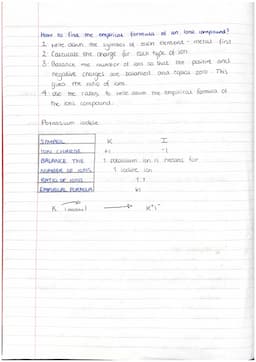 How to find the empirical formula of an ionic compound?
1. Write down the symbol of each element - metal first
2. Calculate the charge for each type of ion.
3. Balance the number of ions so that the positive and
negative charges are balanced and equal zero. This
gives the ratio of ions.
4. Use the ratio to write down the empirical formula of
the ionic compound.
Potassium iodide
SYMBOL K I
ION CHARGE +1 -1
BALANCE THE 1 potassium ion is needed for
NUMBER OF IONS 1 iodine ion
RATIO OF IONS 1:1
EMPIRICAL FORMULA KI
K → K⁺I⁻